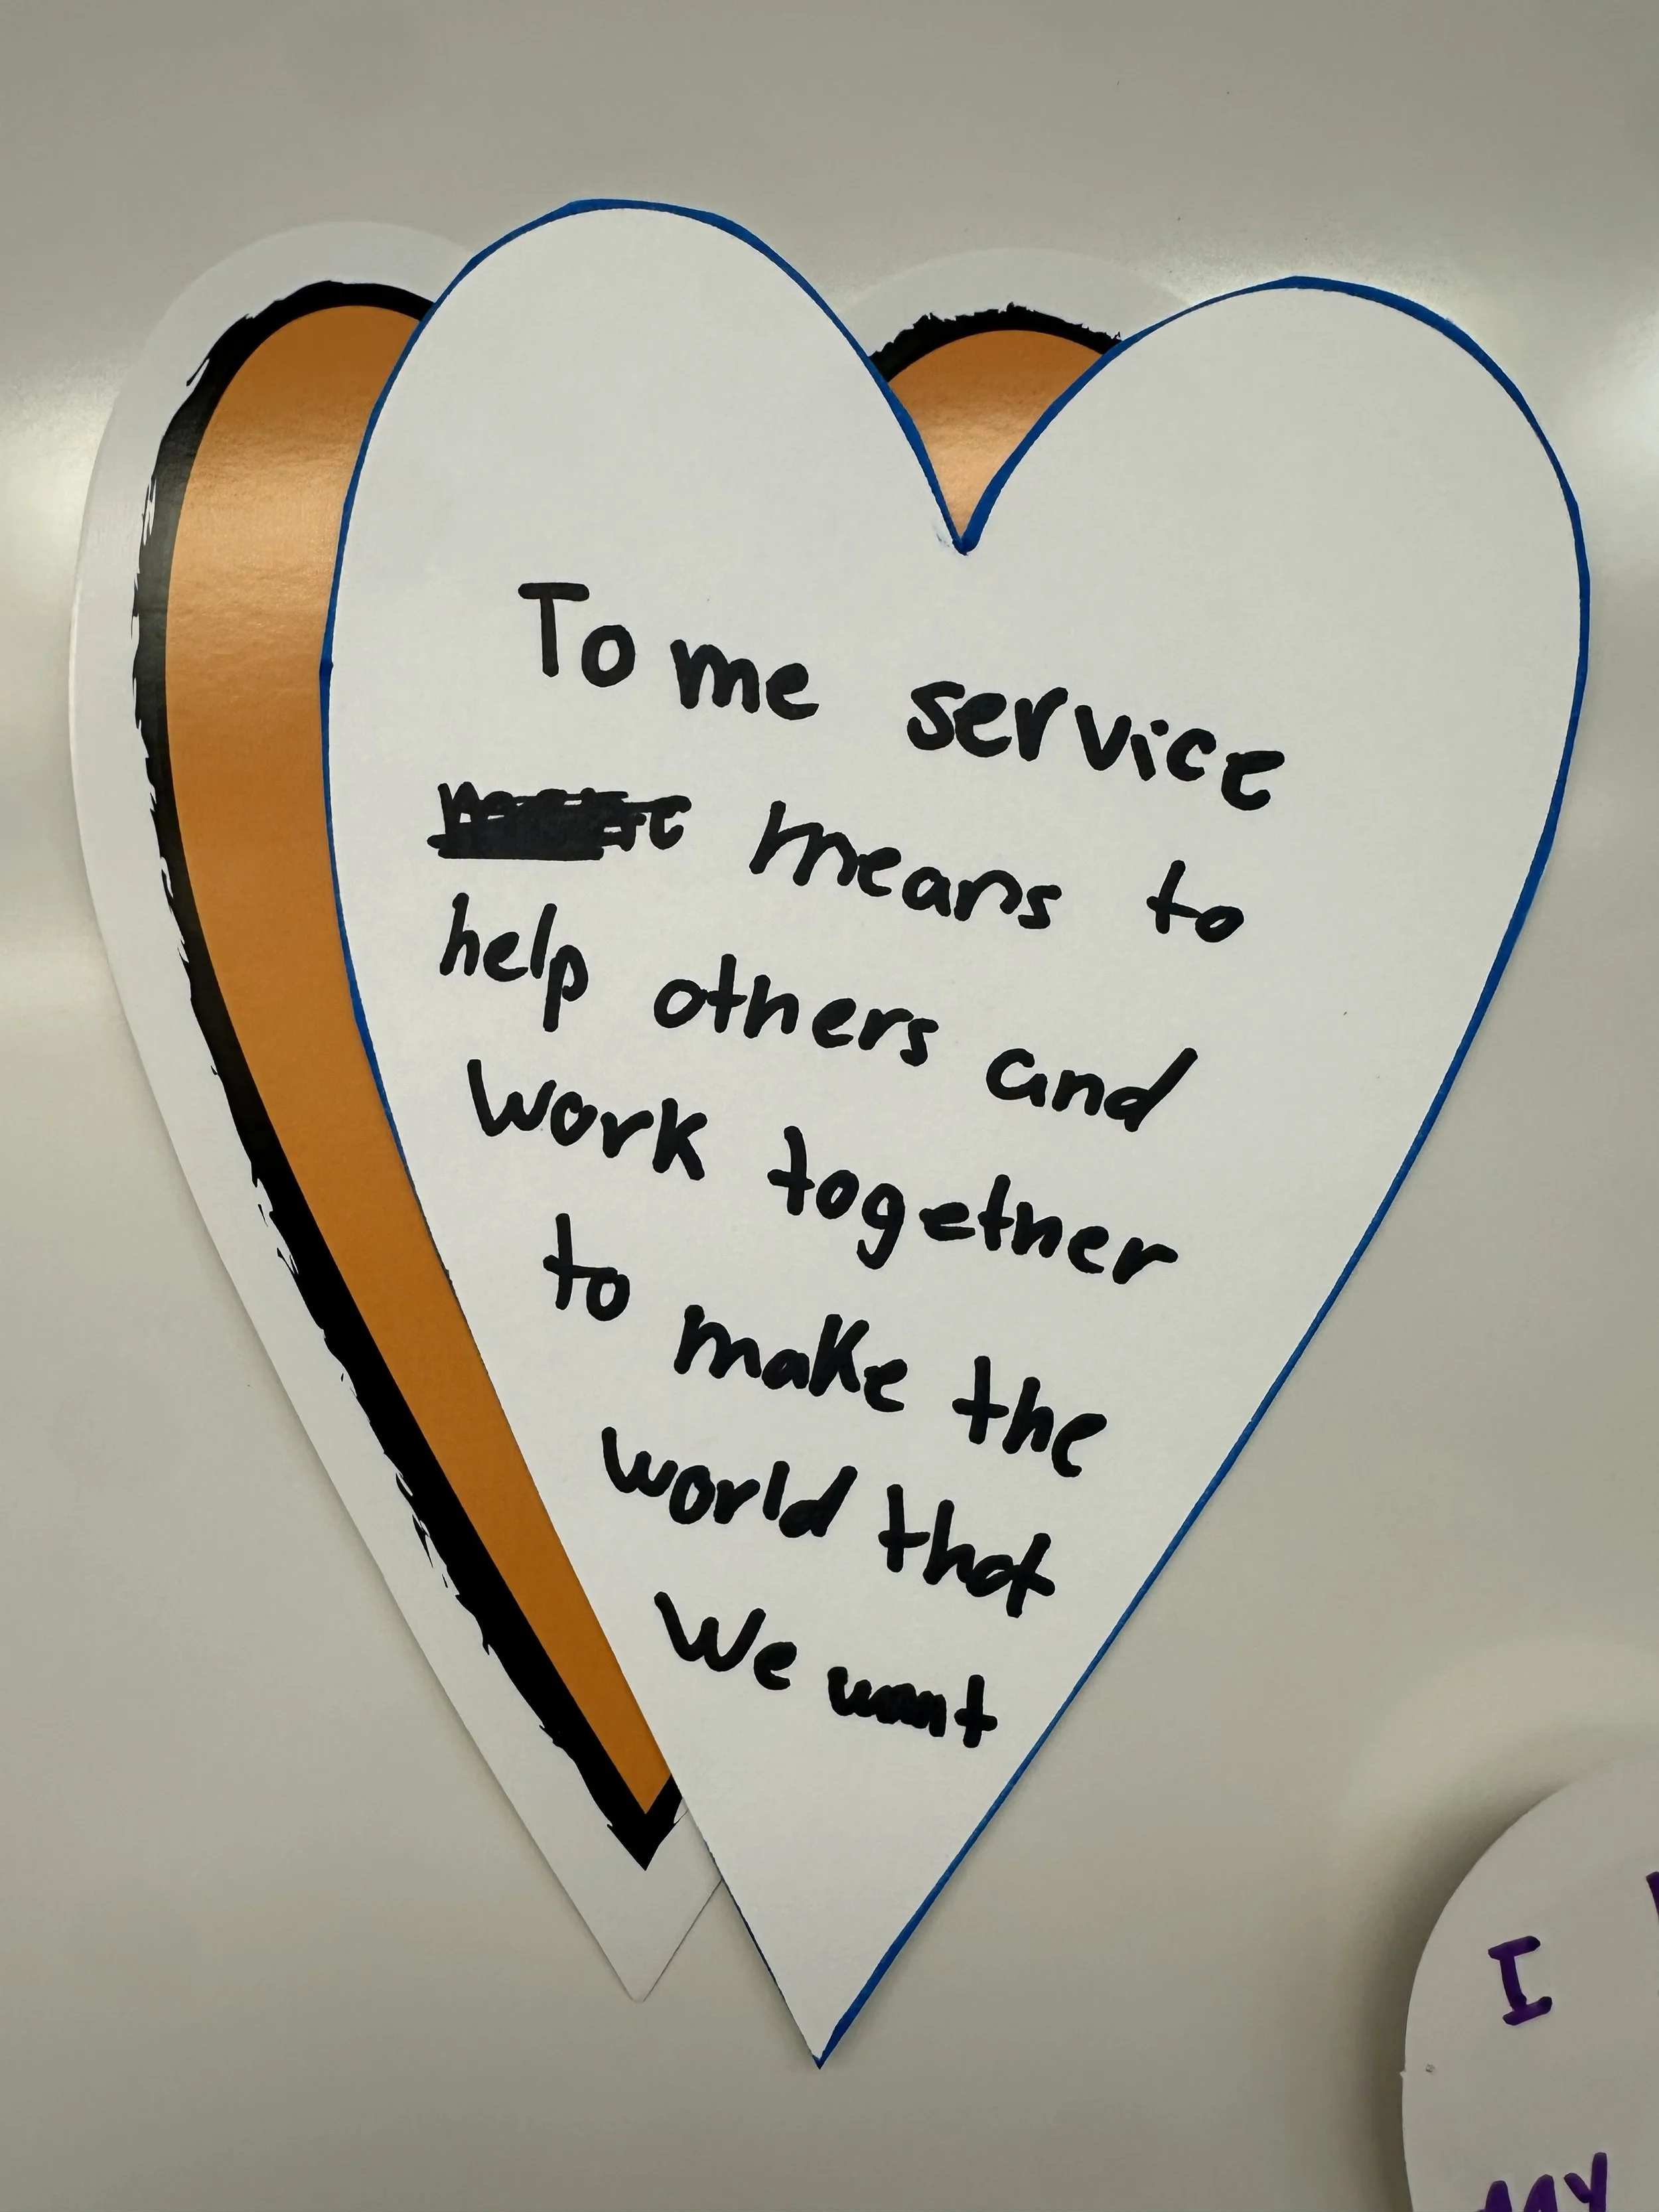 To me service
means to
help others and
work together
to make the
world that
We want
I
MY